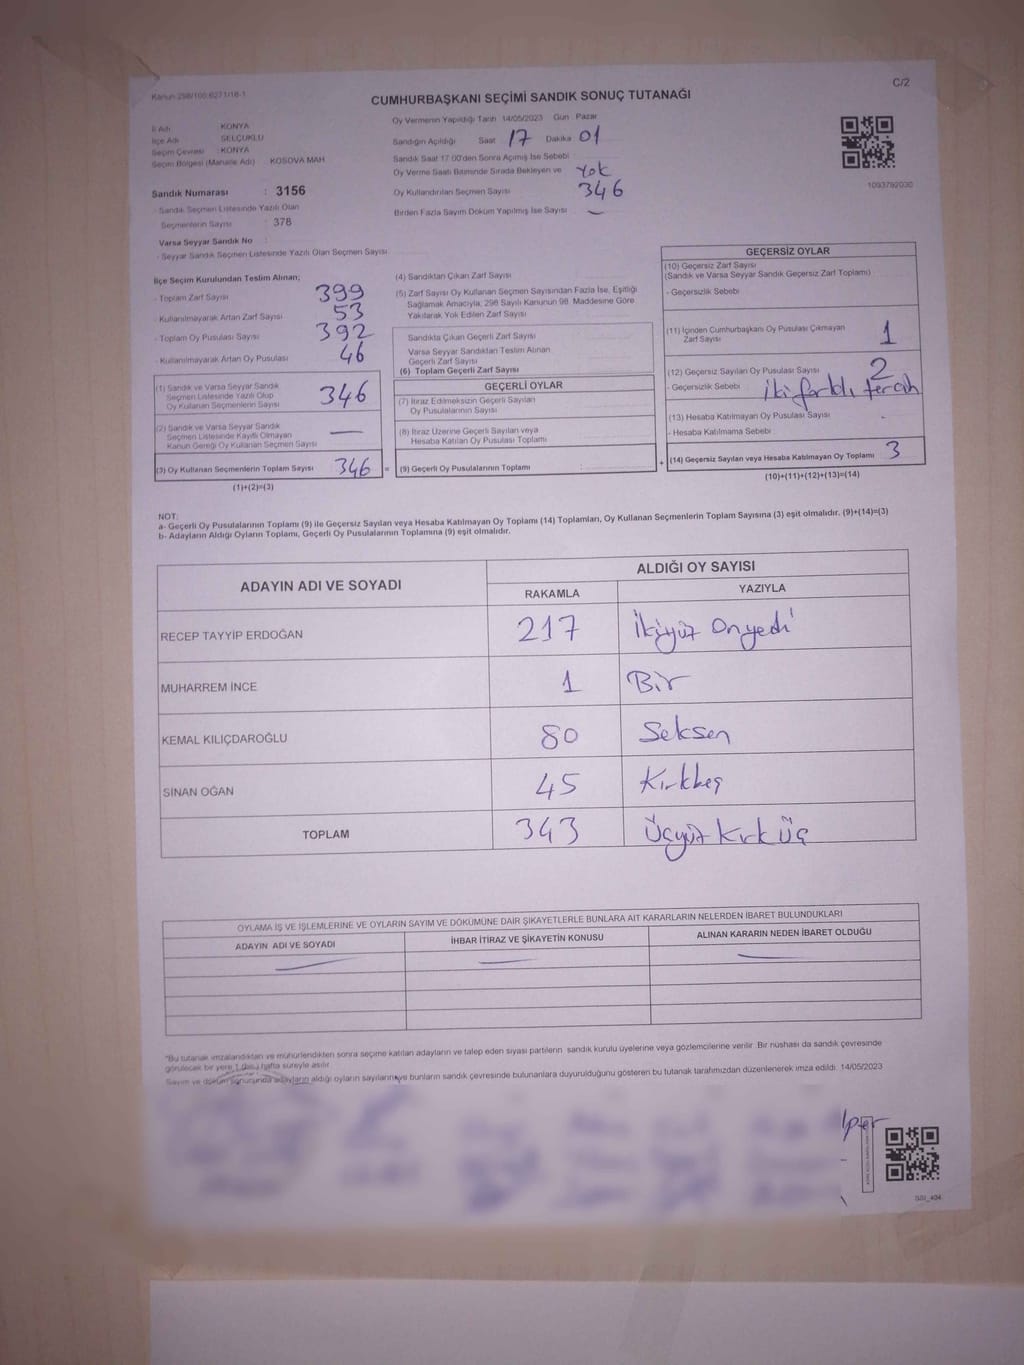 Kanun 298/100,6271/18-1
C/2
CUMHURBAŞKANI SEÇİMİ SANDIK SONUÇ TUTANAĞI
İl Adı KONYA
İlçe Adı SELÇUKLU
Seçim Çevresi : KONYA
Seçim Bölgesi (Mahalle Adı) KOSOVA MAH.
Sandık Numarası : 3156
- Sandık Seçmen Listesinde Yazılı Olan
Seçmenlerin Sayısı : 378
Varsa Seyyar Sandık No :
- Seyyar Sandık Seçmen Listesinde Yazılı Olan Seçmen Sayısı
Oy Vermenin Yapıldığı Tarih 14/05/2023 Gün Pazar
Sandığın Açıldığı Saat 17 Dakika 01
Sandık Saat 17:00'den Sonra Açılmış İse Sebebi
Oy Verme Saati Bitiminde Sırada Bekleyen ve Yok
Oy Kullandırılan Seçmen Sayısı 346
Birden Fazla Sayım Döküm Yapılmış İse Sayısı —
1093792030
İlçe Seçim Kurulundan Teslim Alınan;
- Toplam Zarf Sayısı 399
- Kullanılmayarak Artan Zarf Sayısı 53
- Toplam Oy Pusulası Sayısı 392
- Kullanılmayarak Artan Oy Pusulası 46
(1) Sandık ve Varsa Seyyar Sandık
Seçmen Listesinde Yazılı Olup
Oy Kullanan Seçmenlerin Sayısı 346
(2) Sandık ve Varsa Seyyar Sandık
Seçmen Listesinde Kayıtlı Olmayan
Kanun Gereği Oy Kullanan Seçmen Sayısı —
(3) Oy Kullanan Seçmenlerin Toplam Sayısı 346 =
(1)+(2)=(3)
(4) Sandıktan Çıkan Zarf Sayısı
(5) Zarf Sayısı Oy Kullanan Seçmen Sayısından Fazla İse, Eşitliği
Sağlamak Amacıyla, 298 Sayılı Kanunun 98. Maddesine Göre
Yakılarak Yok Edilen Zarf Sayısı
Sandıkta Çıkan Geçerli Zarf Sayısı
Varsa Seyyar Sandıktan Teslim Alınan
Geçerli Zarf Sayısı
(6) Toplam Geçerli Zarf Sayısı
GEÇERLİ OYLAR
(7) İtiraz Edilmeksizin Geçerli Sayılan
Oy Pusulalarının Sayısı
(8) İtiraz Üzerine Geçerli Sayılan veya
Hesaba Katılan Oy Pusulası Toplamı
(9) Geçerli Oy Pusulalarının Toplamı : +
GEÇERSİZ OYLAR
(10) Geçersiz Zarf Sayısı
(Sandık ve Varsa Seyyar Sandık Geçersiz Zarf Toplamı)
- Geçersizlik Sebebi
(11) İçinden Cumhurbaşkanı Oy Pusulası Çıkmayan
Zarf Sayısı 1
(12) Geçersiz Sayılan Oy Pusulası Sayısı 2
- Geçersizlik Sebebi iki farklı tercih
(13) Hesaba Katılmayan Oy Pusulası Sayısı
- Hesaba Katılmama Sebebi
(14) Geçersiz Sayılan veya Hesaba Katılmayan Oy Toplamı 3
(10)+(11)+(12)+(13)=(14)
NOT:
a- Geçerli Oy Pusulalarının Toplamı (9) ile Geçersiz Sayılan veya Hesaba Katılmayan Oy Toplamı (14) Toplamları, Oy Kullanan Seçmenlerin Toplam Sayısına (3) eşit olmalıdır. (9)+(14)=(3)
b- Adayların Aldığı Oyların Toplamı, Geçerli Oy Pusulalarının Toplamına (9) eşit olmalıdır.
ADAYIN ADI VE SOYADI
ALDIĞI OY SAYISI
RAKAMLA YAZIYLA
RECEP TAYYİP ERDOĞAN 217 İkiyüz Onyedi
MUHARREM İNCE 1 Bir
KEMAL KILIÇDAROĞLU 80 Seksen
SİNAN OĞAN 45 Kırkbeş
TOPLAM 343 Üçyüz Kırk üç
OYLAMA İŞ VE İŞLEMLERİNE VE OYLARIN SAYIM VE DÖKÜMÜNE DAİR ŞİKAYETLERLE BUNLARA AİT KARARLARIN NELERDEN İBARET BULUNDUKLARI
ADAYIN ADI VE SOYADI İHBAR İTİRAZ VE ŞİKAYETİN KONUSU ALINAN KARARIN NEDEN İBARET OLDUĞU
— — —
*Bu tutanak imzalandıktan ve mühürlendikten sonra seçime katılan adayların ve talep eden siyasi partilerin sandık kurulu üyelerine veya gözlemcilerine verilir. Bir nüshası da sandık çevresinde
görülecek bir yere 1 (bir) hafta süreyle asılır.
Sayım ve döküm sonucunda adayların aldığı oyların sayılarını ve bunların sandık çevresinde bulunanlara duyurulduğunu gösteren bu tutanak tarafımızdan düzenlenerek imza edildi. 14/05/2023